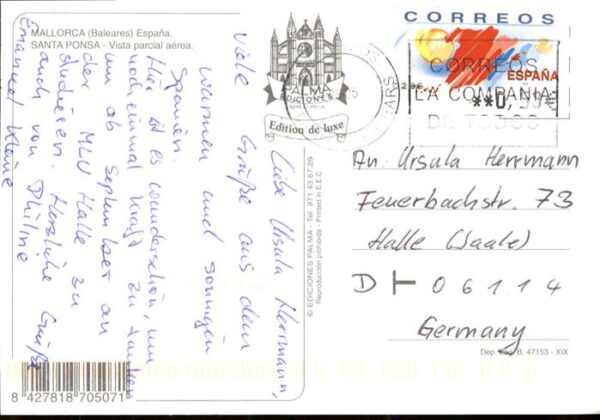 MALLORCA (Baleares) España.
SANTA PONSA - Vista parcial aérea.
PALMA
EDICIONES
MALLORCA
Edition de luxe
Liebe Ursula Herrmann,
viele Grüße aus dem
warmen und sonnigen
Spanien.
Hier ist es wunderschön, um
noch einmal Kraft zu tanken
um ab September an
der MLU Halle zu
studieren. Herzliche Grüße
auch von Philine
Emanuel Kleine
© EDICIONES PALMA - Tel. 971 43 87 29
Reproducción prohibida - Printed in E.E.C.
CORREOS
ESPAÑA
CORREOS
LA COMPAÑIA
DE TODOS
An: Ursula Herrmann
Feuerbachstr. 73
Halle (Saale)
D - 06114
Germany
Dep. Leg. B. 47153 - XIX
8 427818 705071